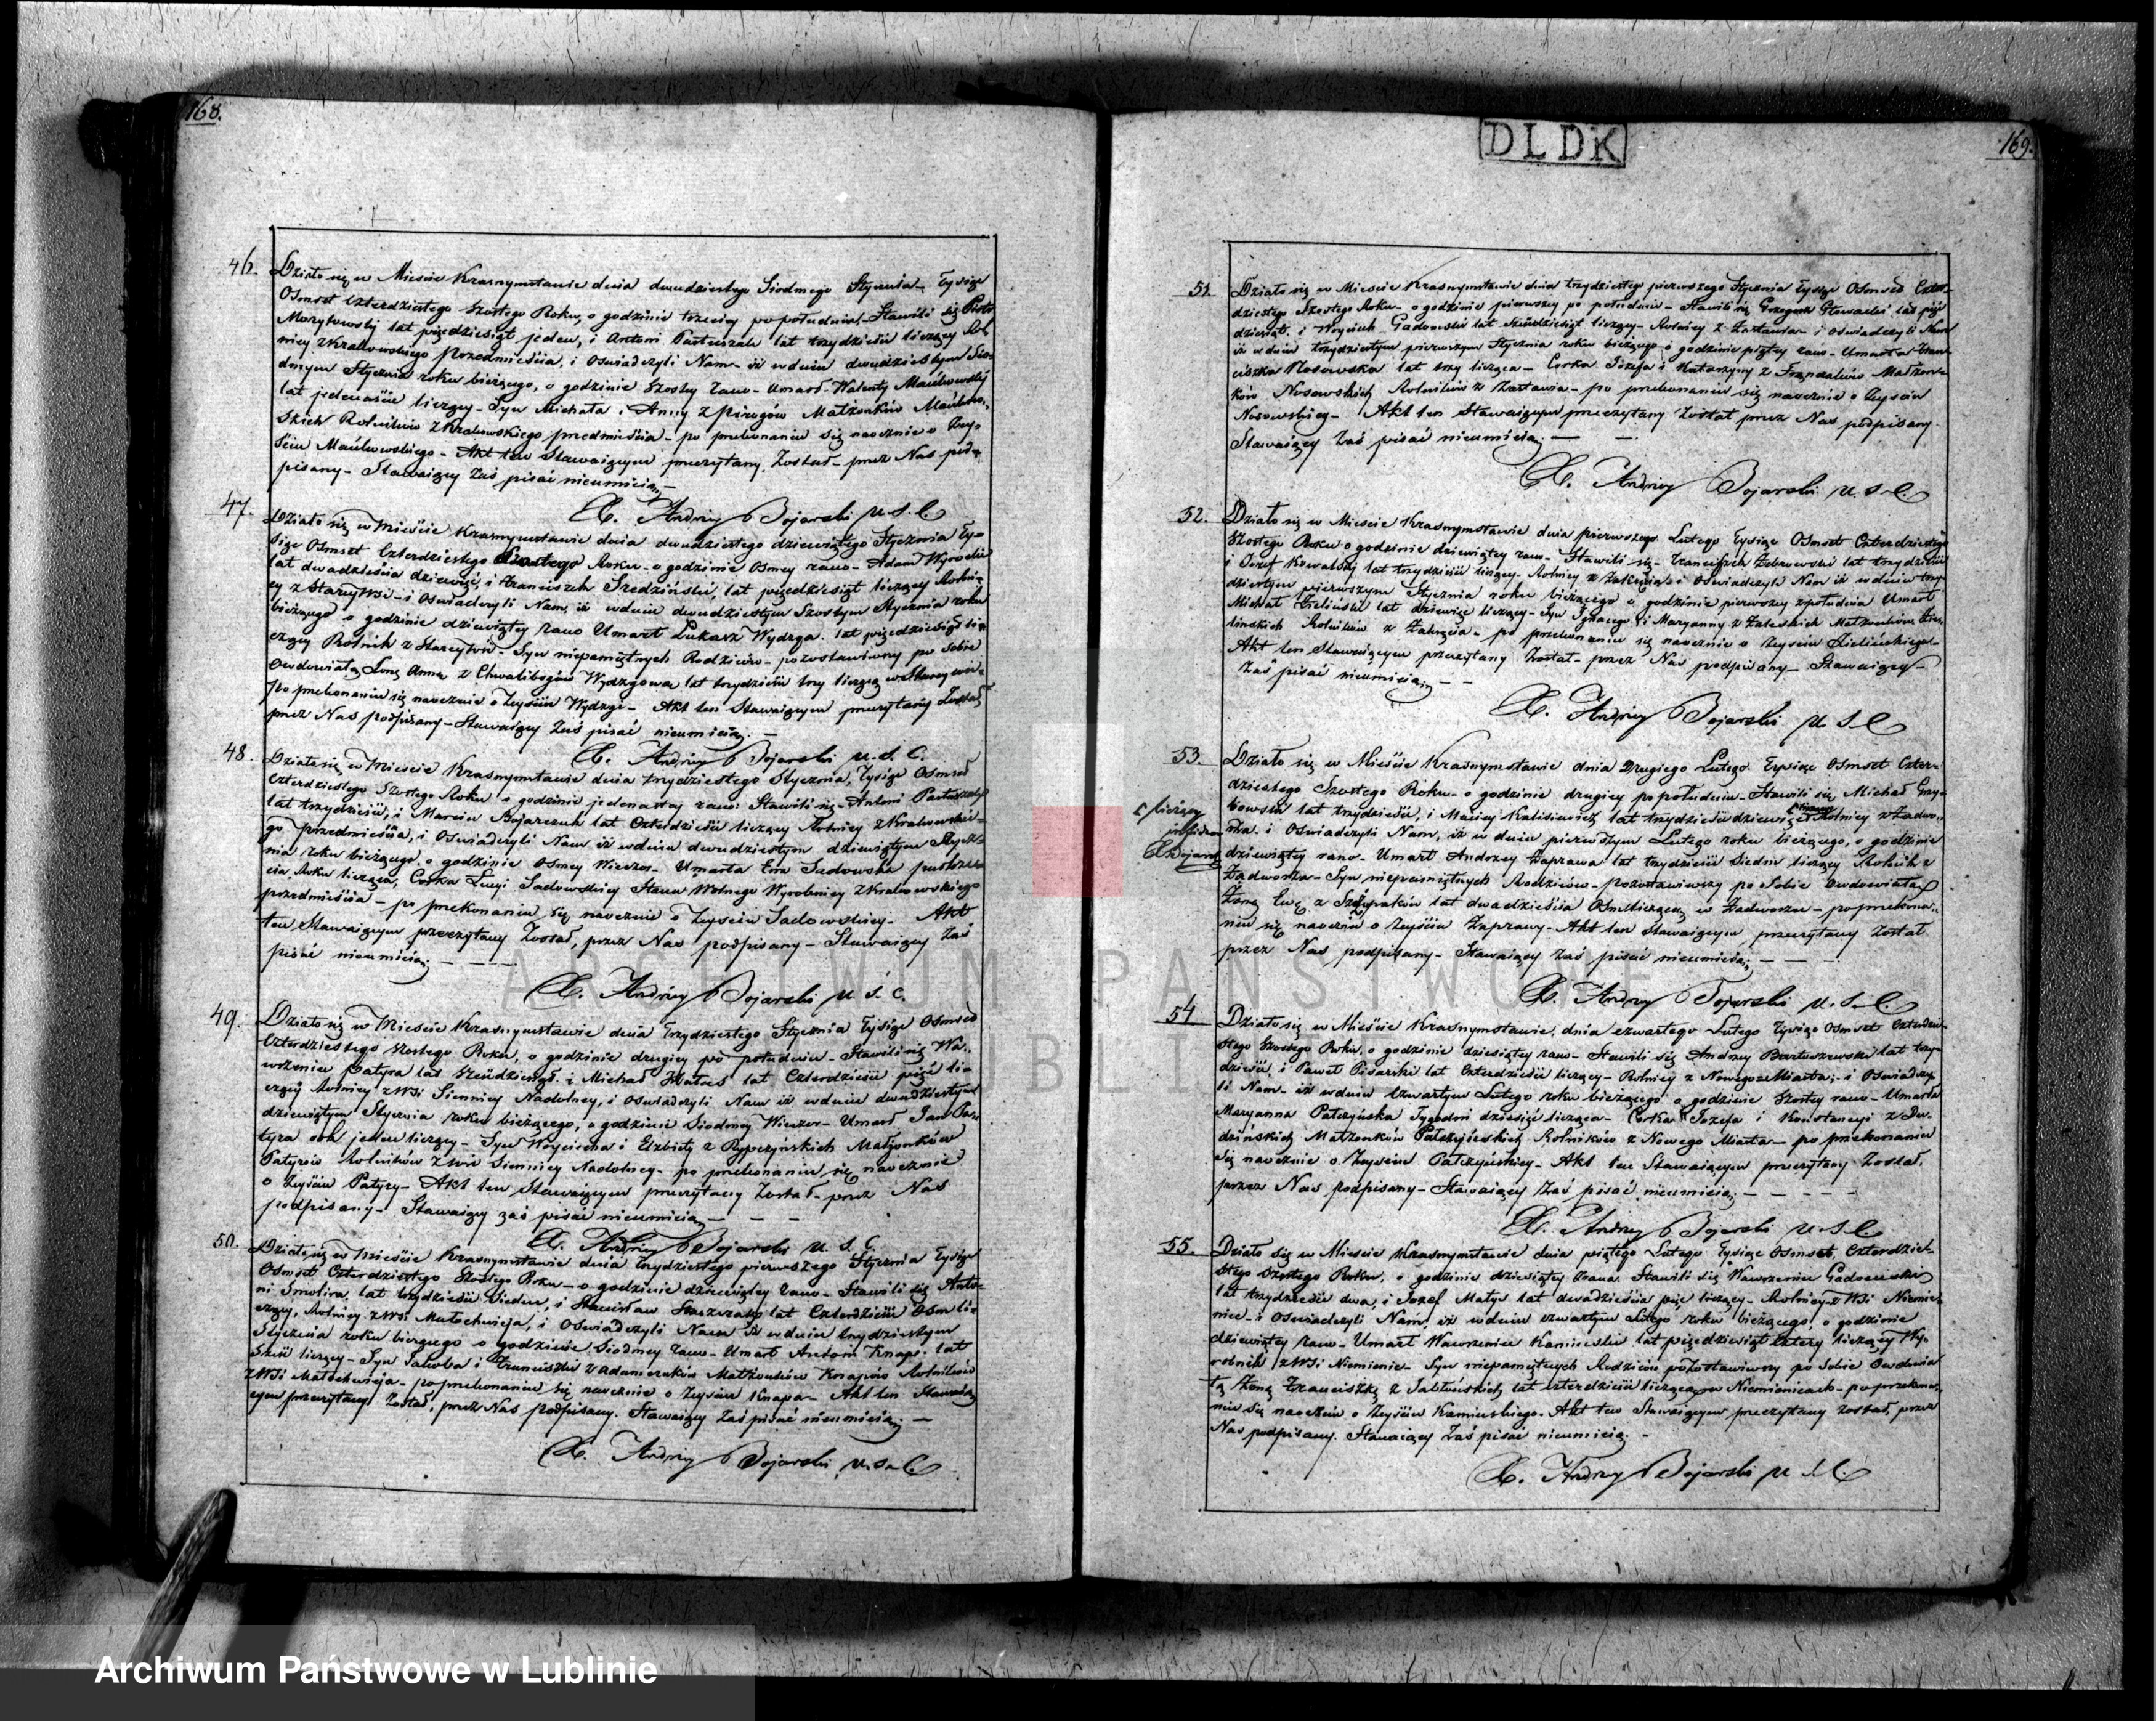 168.
46. Działo się w Mieście Krasnymstawie dnia dwudziestego Siodmego Stycznia Tysiąc
Osmset Czterdziestego Szostego Roku, o godzinie trzeciey popołudniu, Stawili się Piotr
lat pięćdziesiąt jeden, i Antoni Pastuszak lat trzydzieści liczący Rol
nicy z Krakowskiego Przedmieścia, i Oswiadczyli Nam iż w dniu dwudziestym Sio
dmym Stycznia roku bieżącego, o godzinie Szostey rano Umarł Walenty
lat jedenaście liczący Syn Michała i Anny z Pirogów Małżonków
skich Rolników z Krakowskiego przedmieścia po przekonaniu się naocznie o Zey
ściu Akt ten Stawaiącym przeczytany Został przez Nas pod
pisany Stawaiący Zaś pisać nieumieią
X. Andrzey Bojarski U. S. C.
47. Działo się w Mieście Krasnymstawie dnia dwudziestego dziewiątego Stycznia Ty
siąc Osmset Czterdziestego Szostego Roku o godzinie Osmey rano Adam
lat dwadzieścia dziewięć, i Franciszek Sredziński, lat pięćdziesiąt liczący Rolni
cy z Stareywsi i Oswiadczyli Nam, iż w dniu dwudziestym Szostym Stycznia roku
bieżącego o godzinie dziewiątey rano Umarł Łukasz Wydzga lat pięćdziesiąt li
czący Rolnik z Stareywsi Syn niepamiętnych Rodziców pozostawiwszy po sobie
Owdowiałą Żonę Annę z Chwalibogów Wydzgową lat trzydzieści trzy liczącą w Stareywsi
po przekonaniu się naocznie o Zeyściu Wydzgi Akt ten Stawaiącym przeczytany Został
przez Nas podpisany Stawaiący Zaś pisać nieumieią.
X. Andrzey Bojarski U. S. C.
48. Działo się w Mieście Krasnymstawie dnia trzydziestego Stycznia, Tysiąc Osmset
Czterdziestego Szostego Roku o godzinie jedenastey rano: Stawili się Antoni Pastuszak
lat trzydzieści, i Marcin Bojarczuk lat Czterdzieści liczący Rolnicy z Krakowskie
go przedmieścia, i Oswiadczyli Nam iż w dniu dwudziestym dziewiątym Stycz
nia roku bieżącego, o godzinie Osmey Wieczor Umarła Ewa Sadowska
Roku licząca, Corka Łucyi Sadowskiey Stanu Wolnego Wyrobnicy z Krakowskiego
przedmieścia po przekonaniu się naocznie o Zeyściu Sadowskiey Akt
ten Stawaiącym przeczytany Został, przez Nas podpisany Stawaiący Zaś
pisać nieumieią.
X. Andrzey Bojarski U. S. C.
49. Działo się w Mieście Krasnymstawie dnia Trzydziestego Stycznia Tysiąc Osmset
Czterdziestego Szostego Roku, o godzinie drugiey po południu Stawili się Wa
wrzeniec Patyra lat Sześćdziesiąt i Michał lat Czterdzieści pięć li
czący Rolnicy z Wsi Siennicy Nadolney, i Oswiadczyli Nam iż w dniu dwudziestym
dziewiątym Stycznia roku bieżącego, o godzinie Siodmey Wieczor Umarł Jan Pa
tyra rok jeden liczący Syn Woyciecha i Elżbiety z Małżonków
Patyrów Rolników z Wsi Siennicy Nadolney po przekonaniu się naocznie
o Zeyściu Patyry Akt ten Stawaiącym przeczytany Został przez Nas
podpisany Stawaiący zaś pisać nieumieią
X. Andrzey Bojarski U. S. C.
50. Działo się w Mieście Krasnymstawie dnia trzydziestego pierwszego Stycznia Tysiąc
Osmset Czterdziestego Szostego Roku o godzinie dziewiątey rano Stawili się Anto
ni Smolira lat trzydzieści Siedm, i Stanisław lat Czterdzieści Osm li
czący, Rolnicy z Wsi Małochwieja, i Oswiadczyli Nam iż w dniu trzydziestym
Stycznia roku bieżącego o godzinie Siodmey rano Umarł Antoni Knap lat
liczący Syn Jakoba i Franciszki z Adamczuków Małżonków Knapów Rolników
z Wsi Małochwieja po przekonaniu się naocznie o Zeyściu Knapa Akt ten Stawaią
cym przeczytany Został, przez Nas podpisany. Stawaiący Zaś pisać nieumieią.
X. Andrzey Bojarski U. S. C.
DLDK
169.
51. Działo się w Mieście Krasnymstawie dnia trzydziestego pierwszego Stycznia Tysiąc Osmset Czter
dziestego Szostego Roku o godzinie pierwszey po południu Stawili się Grzegorz Głowacki lat pięć
dziesiąt i Woyciech Gadomski lat Sześćdziesiąt liczący Rolnicy z Zastawia i Oswiadczyli Nam
iż w dniu trzydziestym pierwszym Stycznia roku bieżącego o godzinie piątey rano Umarła Fran
ciszka Nosowska lat trzy licząca Corka Józefa i Katarzyny z Małżon
ków Nosowskich Rolników z Zastawia po przekonaniu się naocznie o Zeyściu
Nosowskiey Akt ten Stawaiącym przeczytany Został przez Nas podpisany.
Stawaiący Zaś pisać nieumieią.
X. Andrzey Bojarski U. S. C.
52. Działo się w Mieście Krasnymstawie dnia pierwszego Lutego Tysiąc Osmset Czterdziestego
Szostego Roku o godzinie dziewiątey rano Stawili się Franciszek Żebrowski lat trzydzieści
i Jozef Kowalski lat trzydzieści liczący Rolnicy z Zakręcia i Oswiadczyli Nam iż w dniu trzy
dziestym pierwszym Stycznia roku bieżącego o godzinie pierwszey z południa Umarł
Michał Zieliński lat dziewięć liczący Syn Ignacego i Maryanny z Zaleskich Małżonków Zie
lińskich Rolników z Zakręcia po przekonaniu się naocznie o Zeyściu Zielińskiego
Akt ten Stawaiącym przeczytany Został przez Nas podpisany Stawaiący
Zaś pisać nieumieią
X. Andrzey Bojarski U. S. C.
53. Działo się w Mieście Krasnymstawie dnia Drugiego Lutego Tysiąc Osmset Czter
dziestego Szostego Roku o godzinie drugiey po południu Stawili się Michał Grzy
bowski lat trzydzieści, i Maciey Kalisiewicz lat trzydzieści dziewięć liczący Rolnicy z Zadwo
rza i Oswiadczyli Nam, iż w dniu pierwszym Lutego roku bieżącego, o godzinie
dziewiątey rano Umarł Andrzey Zaprawa lat trzydzieści Siedm liczący Rolnik z
Zadworza Syn niepamiętnych Rodziców pozostawiwszy po Sobie Owdowiałą
Żonę Ewę z lat dwadzieścia Osm liczącą w Zadworzu po przekona
niu się naocznie o Zeyściu Zaprawy Akt ten Stawaiącym przeczytany Został
przez Nas podpisany Stawaiący Zaś pisać nieumieią
liczący
XBojarski
X. Andrzey Bojarski U. S. C.
54 Działo się w Mieście Krasnymstawie, dnia czwartego Lutego Tysiąc Osmset Czterdzie
stego Szostego Roku, o godzinie dziesiątey rano Stawili się Andrzey Bartoszewski lat trzy
dzieści, i Paweł Pisarski lat Czterdzieści liczący Rolnicy z Nowego Miasta, i Oswiadczy
li Nam iż w dniu Czwartym Lutego roku bieżącego o godzinie Szostey rano Umarła
Maryanna Patczyńska Tygodni dziesięć licząca Corka Jozefa i Konstancyi z
dzińskich Małżonków Patczyńskich Rolników z Nowego Miasta po przekonaniu
się naocznie o Zeyściu Patczyńskiey Akt ten Stawaiącym przeczytany Został,
przez Nas podpisany Stawaiący Zaś pisać nieumieią
X. Andrzey Bojarski U. S. C.
55. Działo się w Mieście Krasnymstawie dnia piątego Lutego Tysiąc Osmset Czterdzie
stego Szostego Roku, o godzinie dziewiątey zrana Stawili się Wawrzeniec Gadomski
lat trzydzieści dwa, i Jozef Matys lat dwadzieścia pięć liczący Rolnicy z Wsi Niemie
nic i Oswiadczyli Nam, iż w dniu czwartym Lutego roku bieżącego, o godzinie
dziewiątey rano Umarł Wawrzeniec Kamiński lat pięćdziesiąt cztery liczący Wy
robnik z Wsi Niemienic Syn niepamiętnych Rodziców pozostawiwszy po Sobie Owdowia
łą Żonę Franciszkę z lat czterdzieści liczącą w Niemienicach po przekona
niu się naocznie o Zeyściu Kamińskiego. Akt ten Stawaiącym przeczytany Został, przez
Nas podpisany. Stawaiący Zaś pisać nieumieią.
X. Andrzey Bojarski U. S. C.
ARCHIWUM PAŃSTWOWE
Archiwum Państwowe w Lublinie